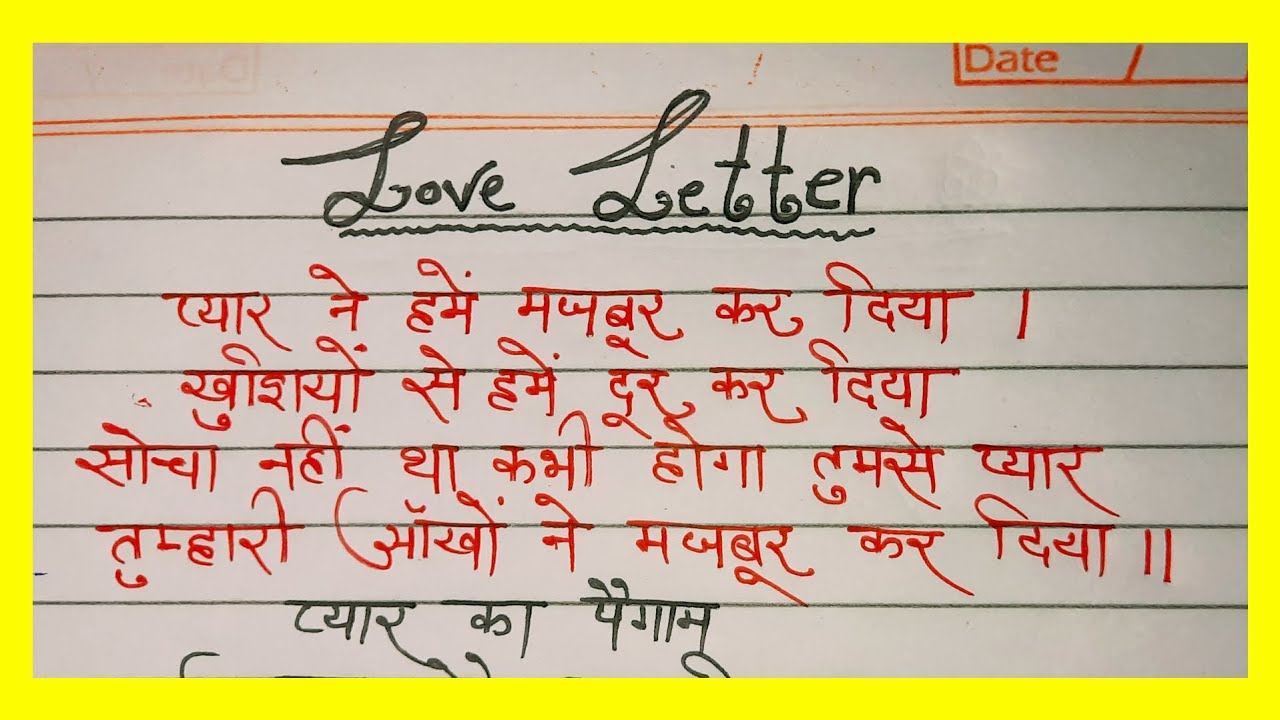 Date /
Love Letter
प्यार ने हमें मजबूर कर दिया ।
खुशियों से हमें दूर कर दिया
सोचा नहीं था कभी होगा तुमसे प्यार
तुम्हारी आँखों ने मजबूर कर दिया ॥
प्यार का पैगाम